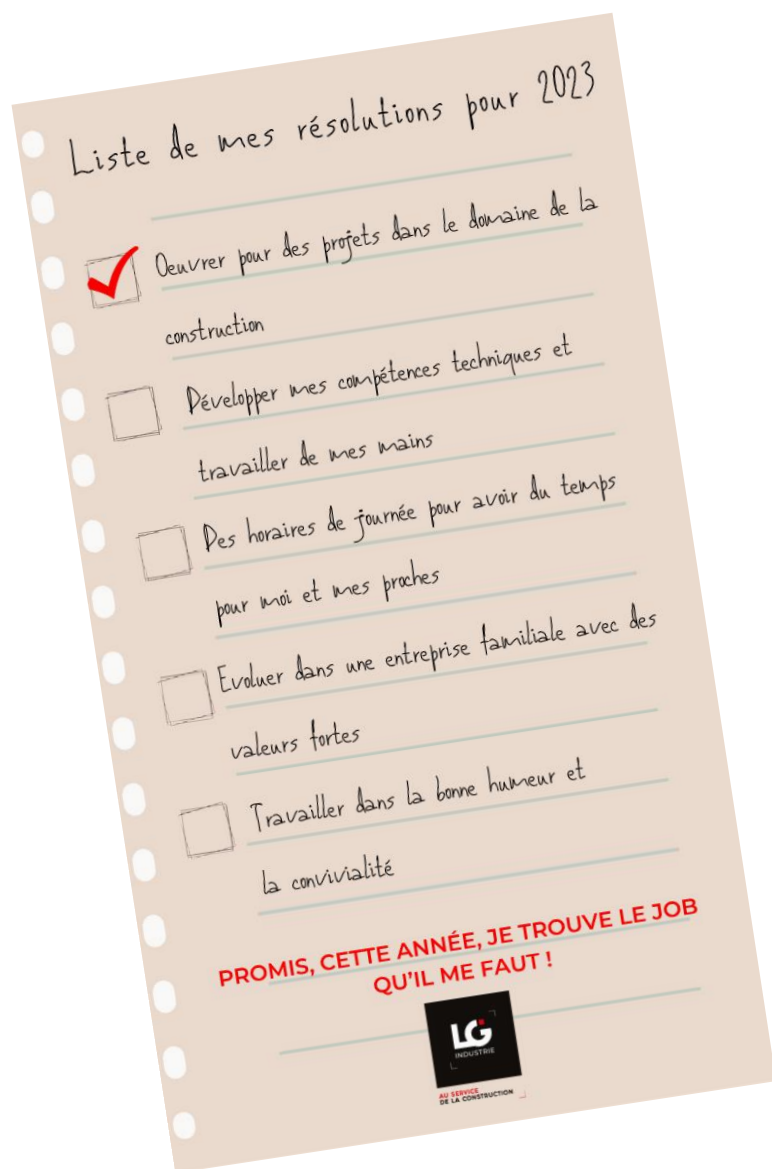 Liste de mes résolutions pour 2023
Oeuvrer pour des projets dans le domaine de la
construction
Développer mes compétences techniques et
travailler de mes mains
Des horaires de journée pour avoir du temps
pour moi et mes proches
Evoluer dans une entreprise familiale avec des
valeurs fortes
Travailler dans la bonne humeur et
la convivialité
PROMIS, CETTE ANNÉE, JE TROUVE LE JOB
QU'IL ME FAUT !
LG
INDUSTRIE
AU SERVICE
DE LA CONSTRUCTION